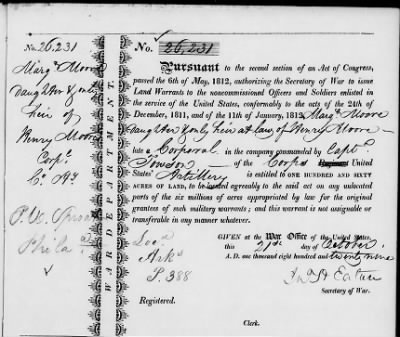 No. 26,231
Margt Moore
daughter & only
heir of
Henry Moore
Corpl
Phila
WAR DEPARTMENT.
No. 26,231
Pursuant to the second section of an Act of Congress,
passed the 6th of May, 1812, authorizing the Secretary of War to issue
Land Warrants to the noncommissioned Officers and Soldiers enlisted
in the service of the United States, conformably to the acts of the 24th
December, 1811, and of the 11th of January, 1812, Margt Moore
daughter & only heir at law of Henry Moore
late a Corporal in the company commanded by Captn
Towson of the Corps Regiment United
States' Artillery is entitled to ONE HUNDRED AND SIXTY
ACRES OF LAND, to be located agreeably to the said act on any unlocated
parts of the six millions of acres appropriated by law for the original
grantees of such military warrants; and this warrant is not assignable or
transferable in any manner whatever.
GIVEN at the War Office of the United States,
this 21st day of October
A. D. one thousand eight hundred and twenty nine
Jno H Eaton
Secretary of War.
Loca
Arks
P. 388
Registered.
Clerk.